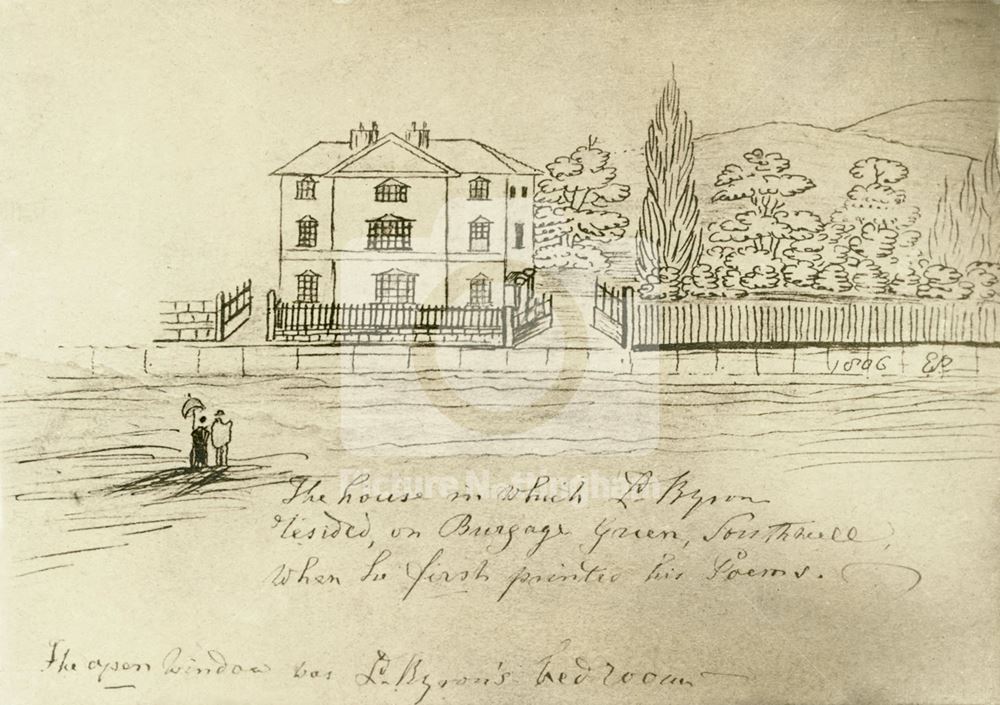 1806 EP
The house in which Ld. Byron
resided, on Burgage Green, Southwell,
when he first printed his Poems.
The open window was Ld. Byron's bedroom
Picture Nottingham